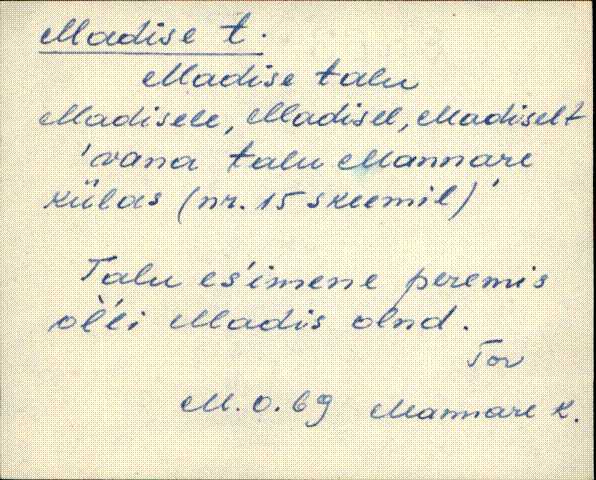 Madise t.
Madise talu
Madisele, Madisel, Madiselt
'vana talu Mannare
külas (nr. 15 skeemil)'
Talu eśimene peremis
olĺi Madis olnd.
Tor
M. O. 69 Mannare k.